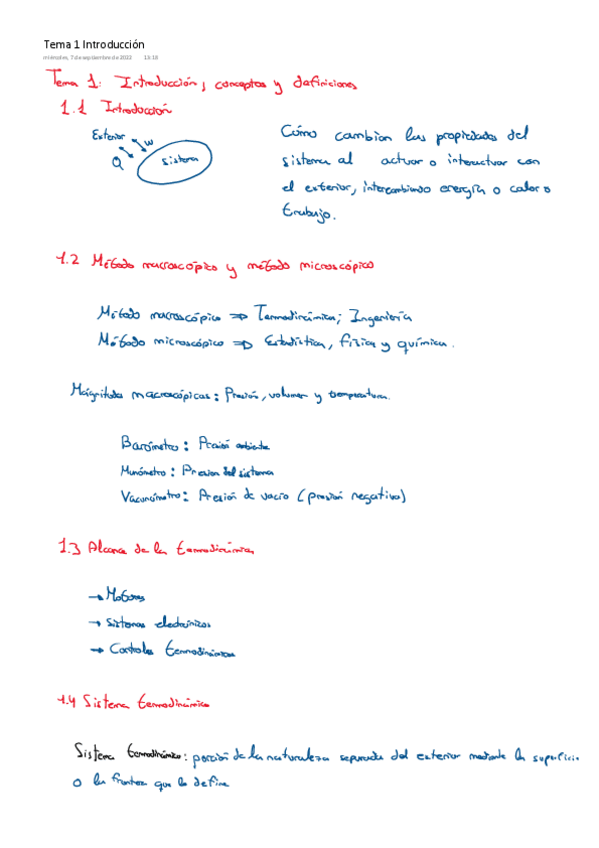 Tema 1 Introducción
miércoles, 7 de septiembre de 2022 13:18
Tema 1: Introducción, conceptos y definiciones
1.1 Introducción
Exterior
W
Q
Sistema
Cómo cambian las propiedades del
sistema al actuar o interactuar con
el exterior, intercambiando energía o calor o
trabajo.
1.2 Método macroscópico y método microscópico
Método macroscópico ⇒ Termodinámica; Ingeniería
Método microscópico ⇒ Estadística, física y química.
Magnitudes macroscópicas: Presión, volumen y temperatura.
Barómetro: Presión ambiente
Manómetro: Presion del sistema
Vacuómetro: Presión de vacío (presión negativa)
1.3 Alcance de la termodinámica
→ Motores
→ Sistemas electrónicos
→ Controles termodinámicos
1.4 Sistema termodinámico
Sistema termodinámico: porción de la naturaleza separada del exterior mediante la superficie
o la frontera que lo define